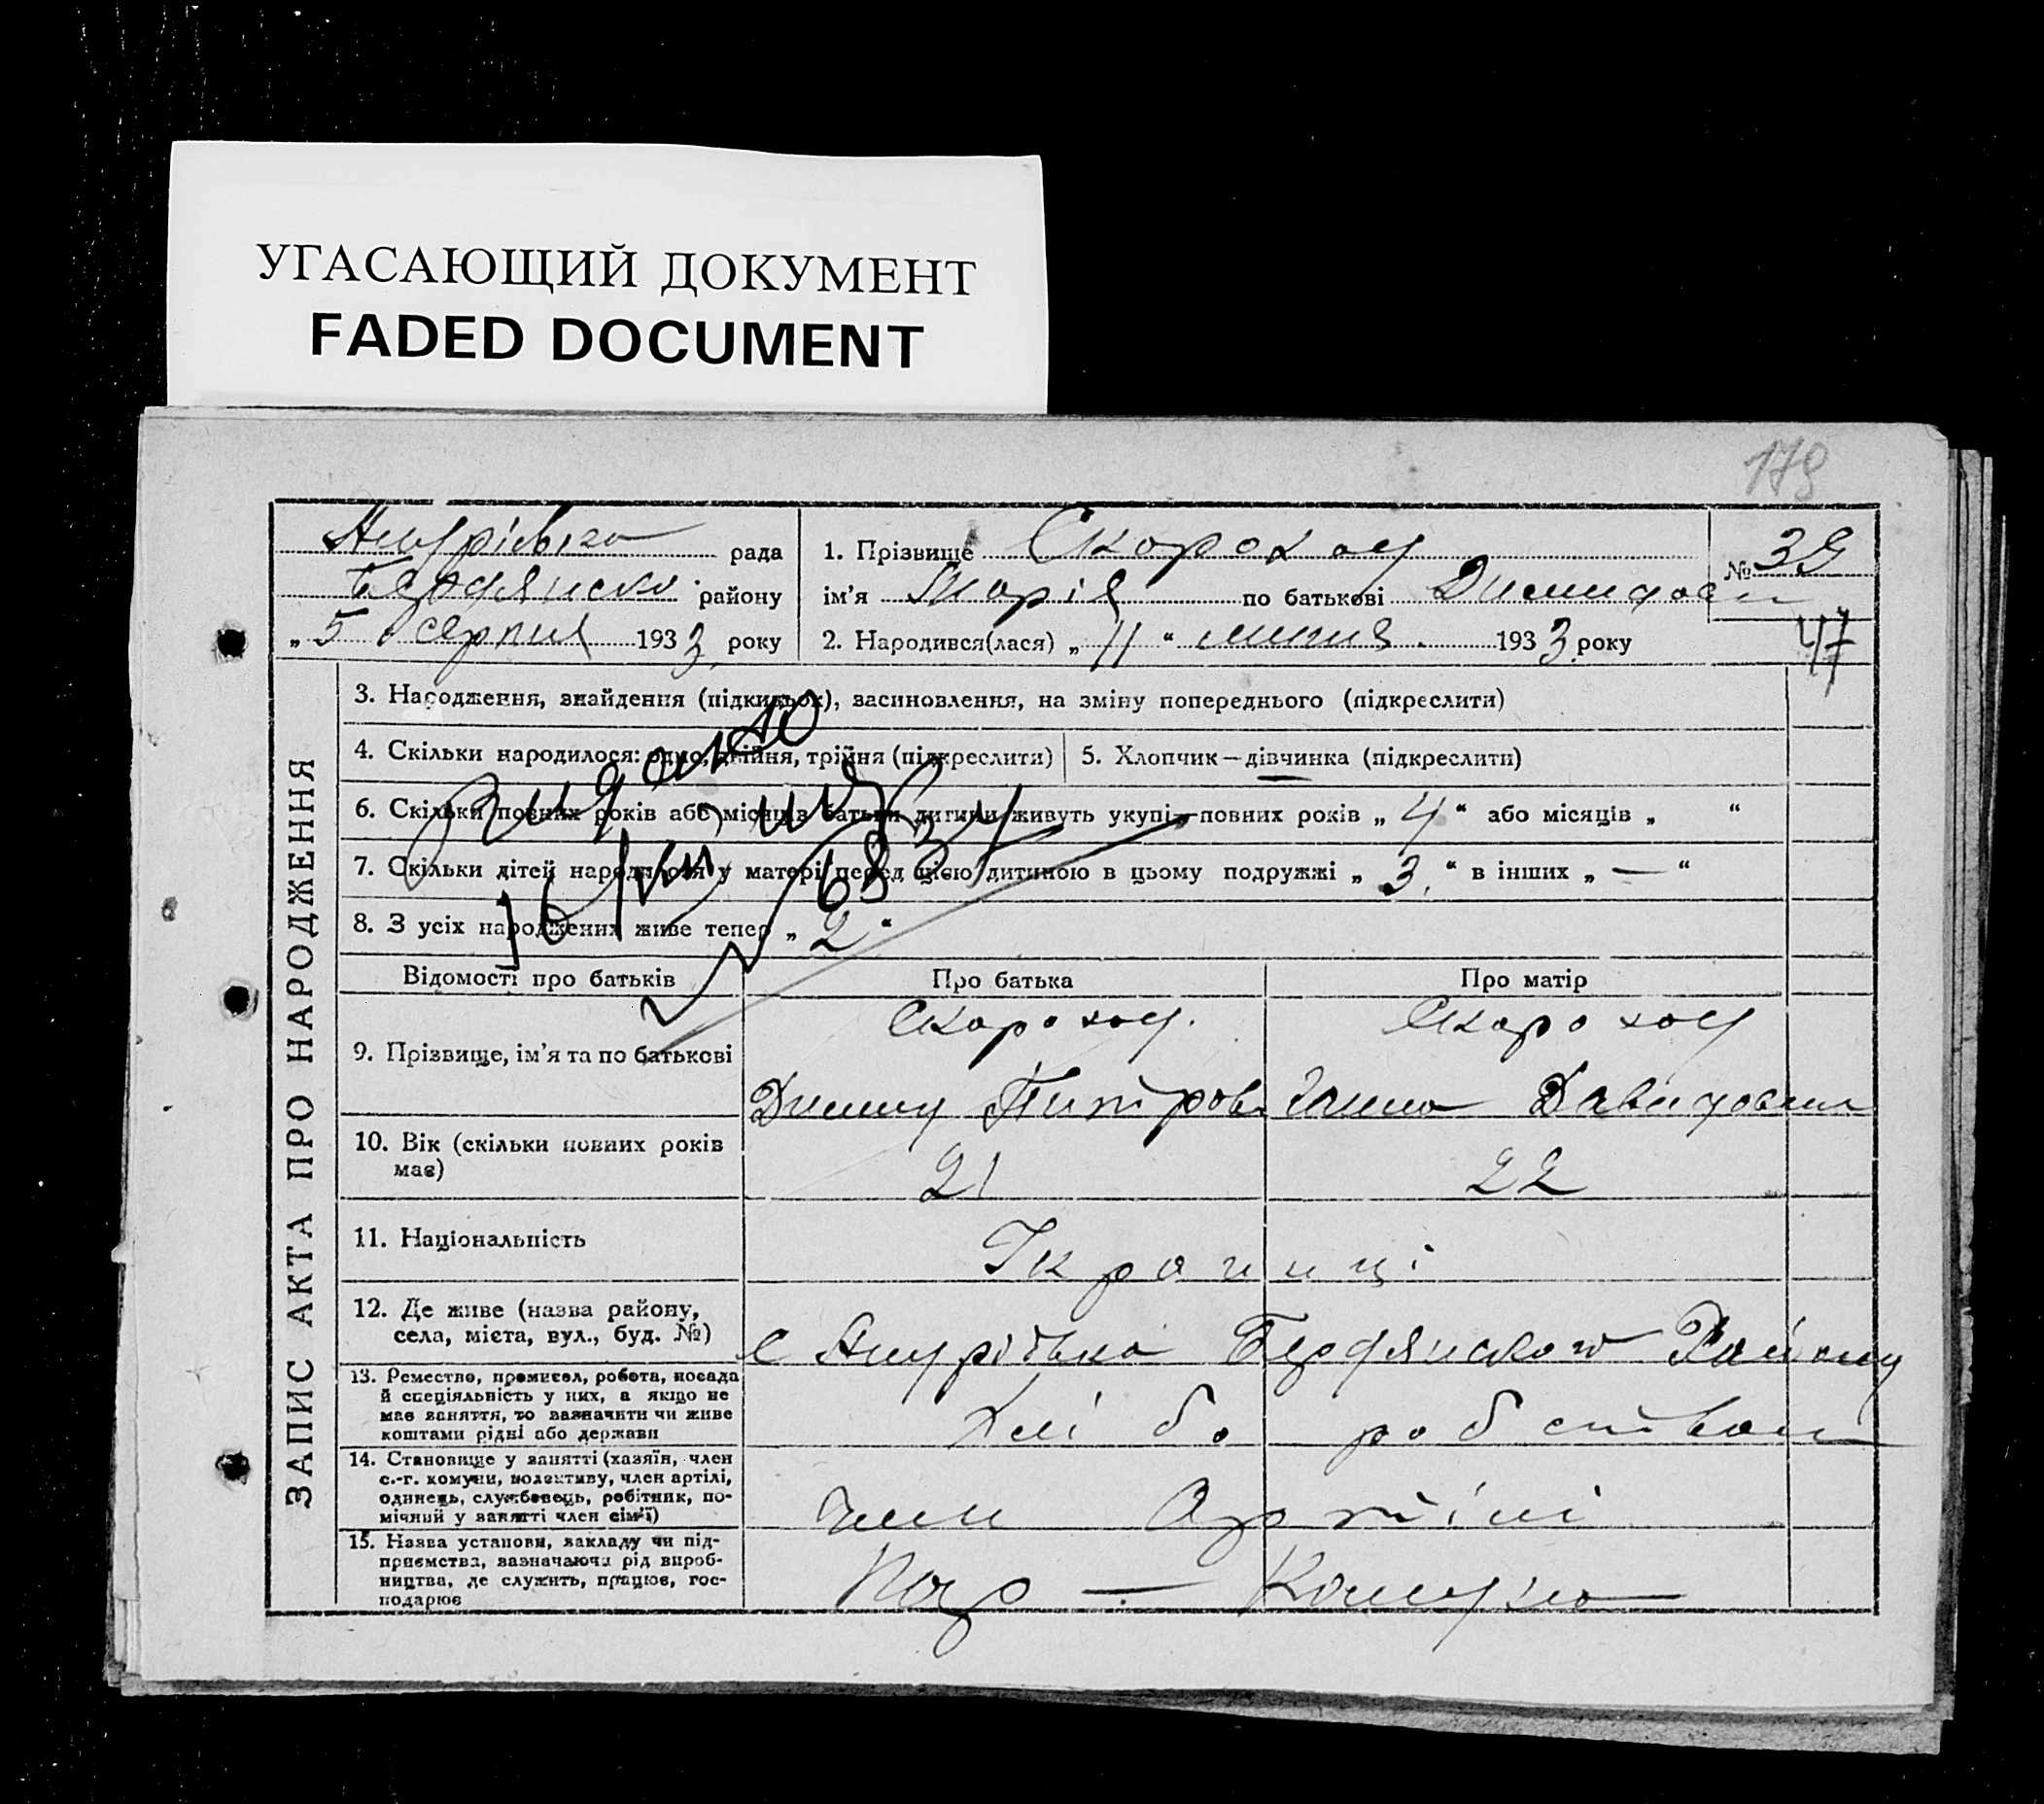 УГАСАЮЩИЙ ДОКУМЕНТ
FADED DOCUMENT
178
рада
района
„ 5 " серпня 1933 року
1. Прізвище Скороход
ім’я Марія по батькові
2. Народився(лася) „ 11 “ липня 1933 року
№ 39
47
ЗАПИС АКТА ПРО НАРОДЖЕННЯ
3. Народження, знайдення (підкидьок), засиновлення, на зміну попереднього (підкреслити)
4. Скільки народилося: одно, двійня, трійня (підкреслити)
5. Хлопчик — дівчинка (підкреслити)
6. Скільки повних років або місяців батьки дитини живуть укупі — повних років „ 4 “ або місяців „ “
7. Скільки дітей народилося у матері перед цією дитиною в цьому подружжі „ 3 “ в інших „ — “
8. З усіх народжених живе тепер „ 2 “
Відомості про батьків
Про батька
Про матір
9. Прізвище, ім’я та по батькові
Скороход
Скороход
Ганна Давидовна
10. Вік (скільки повних років
має)
21
22
11. Національність
12. Де живе (назва району,
села, міста, вул., буд. №)
с Району
13. Ремество, промисел, робота, посада
й спеціяльність у них, а якщо не
має заняття, то зазначити чи живе
коштами рідні або держави
Хліборобством
14. Становище у занятті (хазяїн, член
с.-г. комуни, колективу, член артілі,
одинець, службовець, робітник, по-
мічний у занятті член сім’ї)
член Артілі
15. Назва установи, закладу чи під-
приємства, зазначаючи рід вироб-
ництва, де служить, працює, гос-
подарює